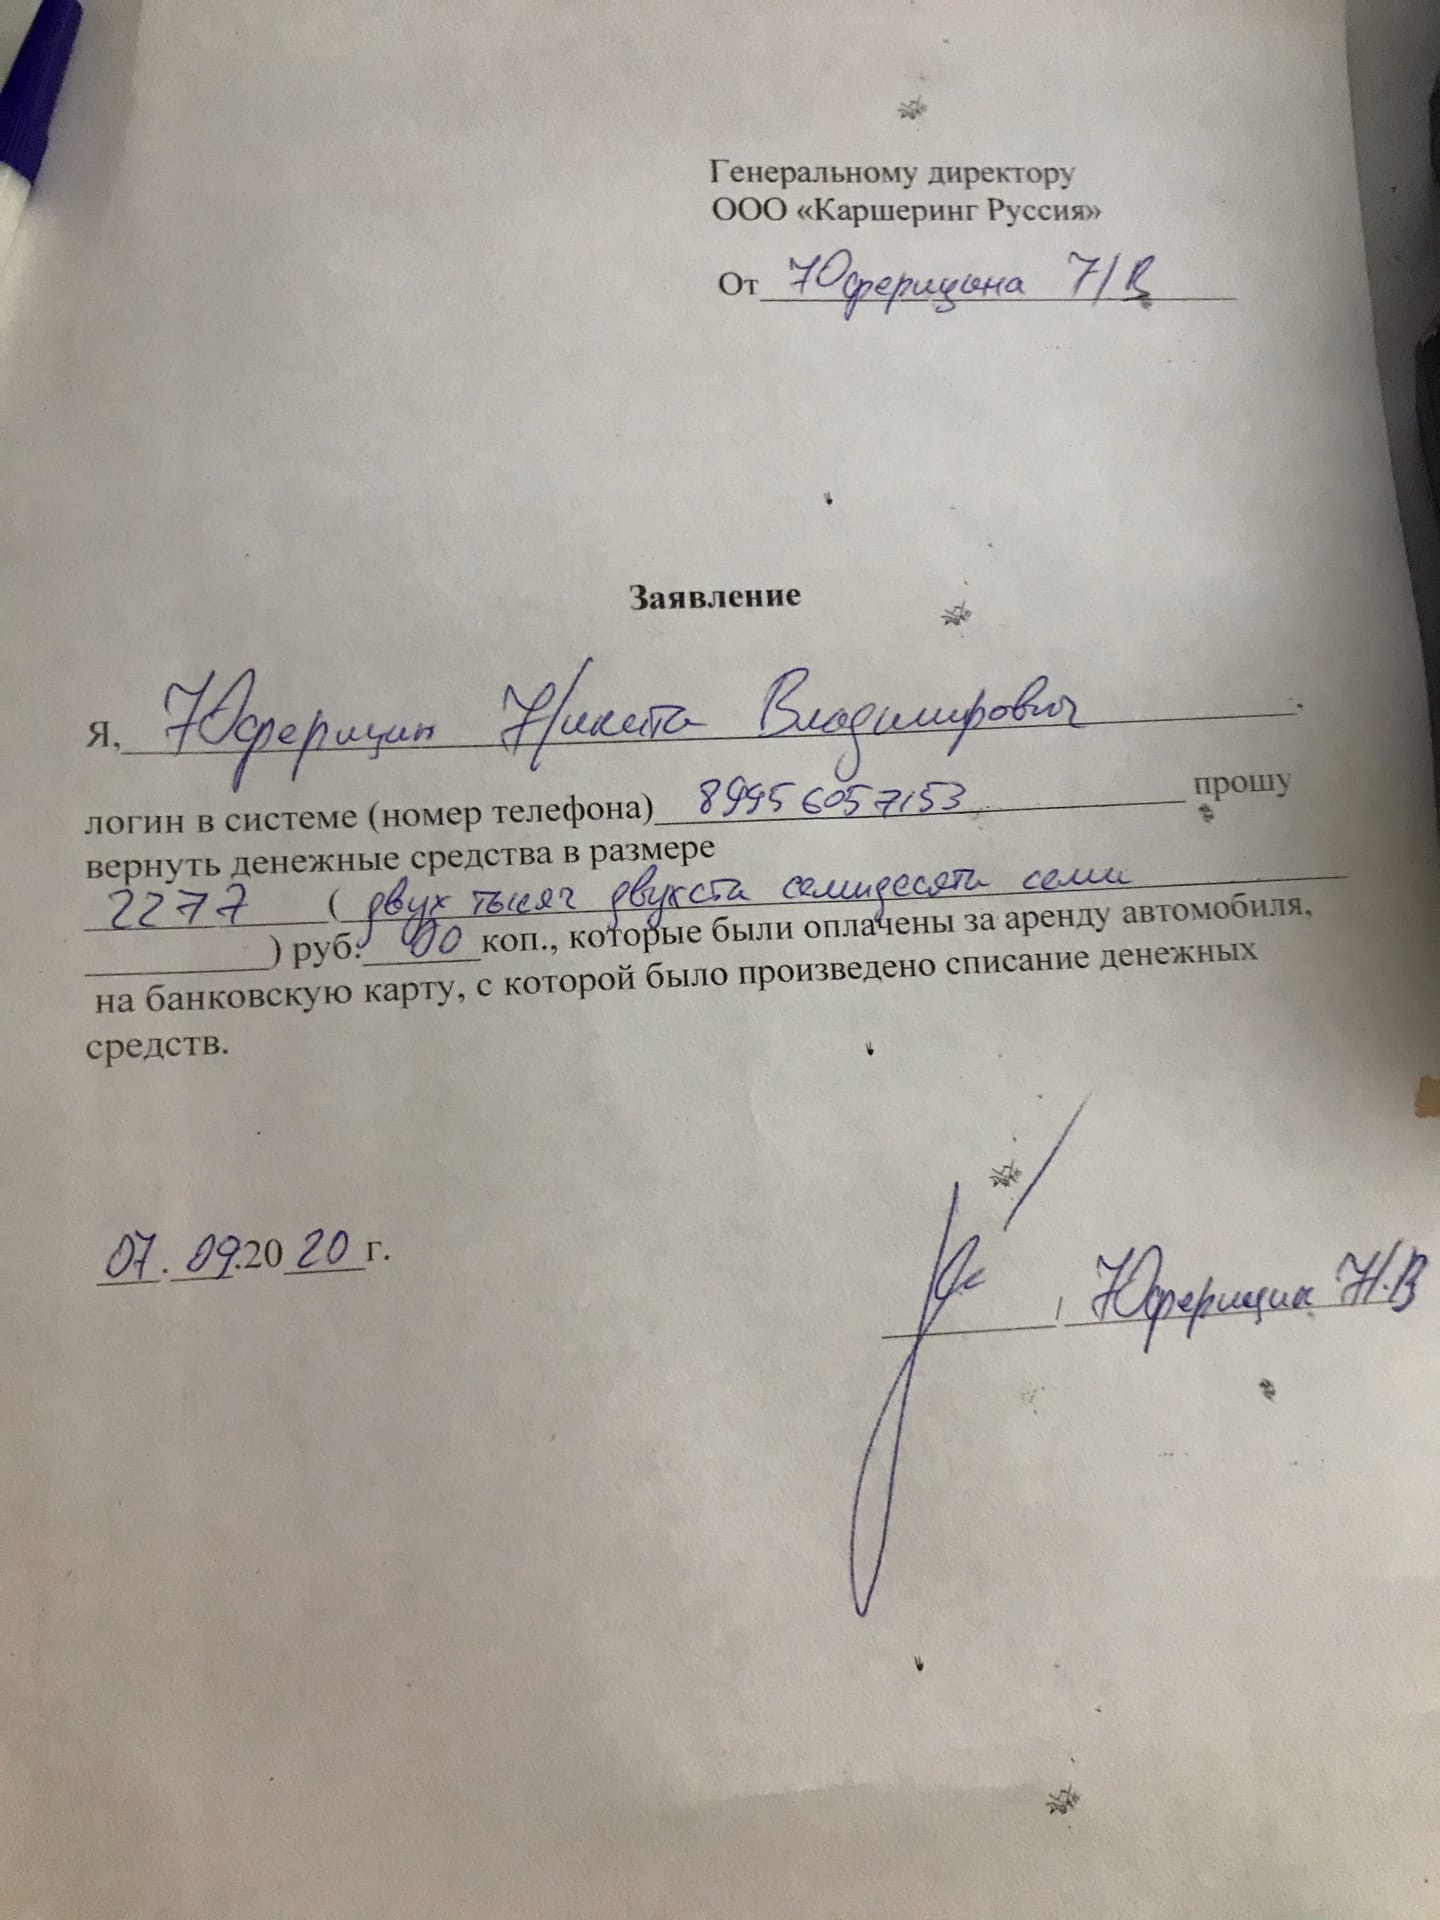 Генеральному директору
ООО «Каршеринг Руссия»
От Юферицына Н В
Заявление
Я, Юферицин Никита Владимирович,
логин в системе (номер телефона) 89956057153 прошу
вернуть денежные средства в размере
2277 ( двух тысяч двухста семидесяти семи
) руб. 00 коп., которые были оплачены за аренду автомобиля,
на банковскую карту, с которой было произведено списание денежных
средств.
07.09.2020 г.
/ Юферицин Н.В